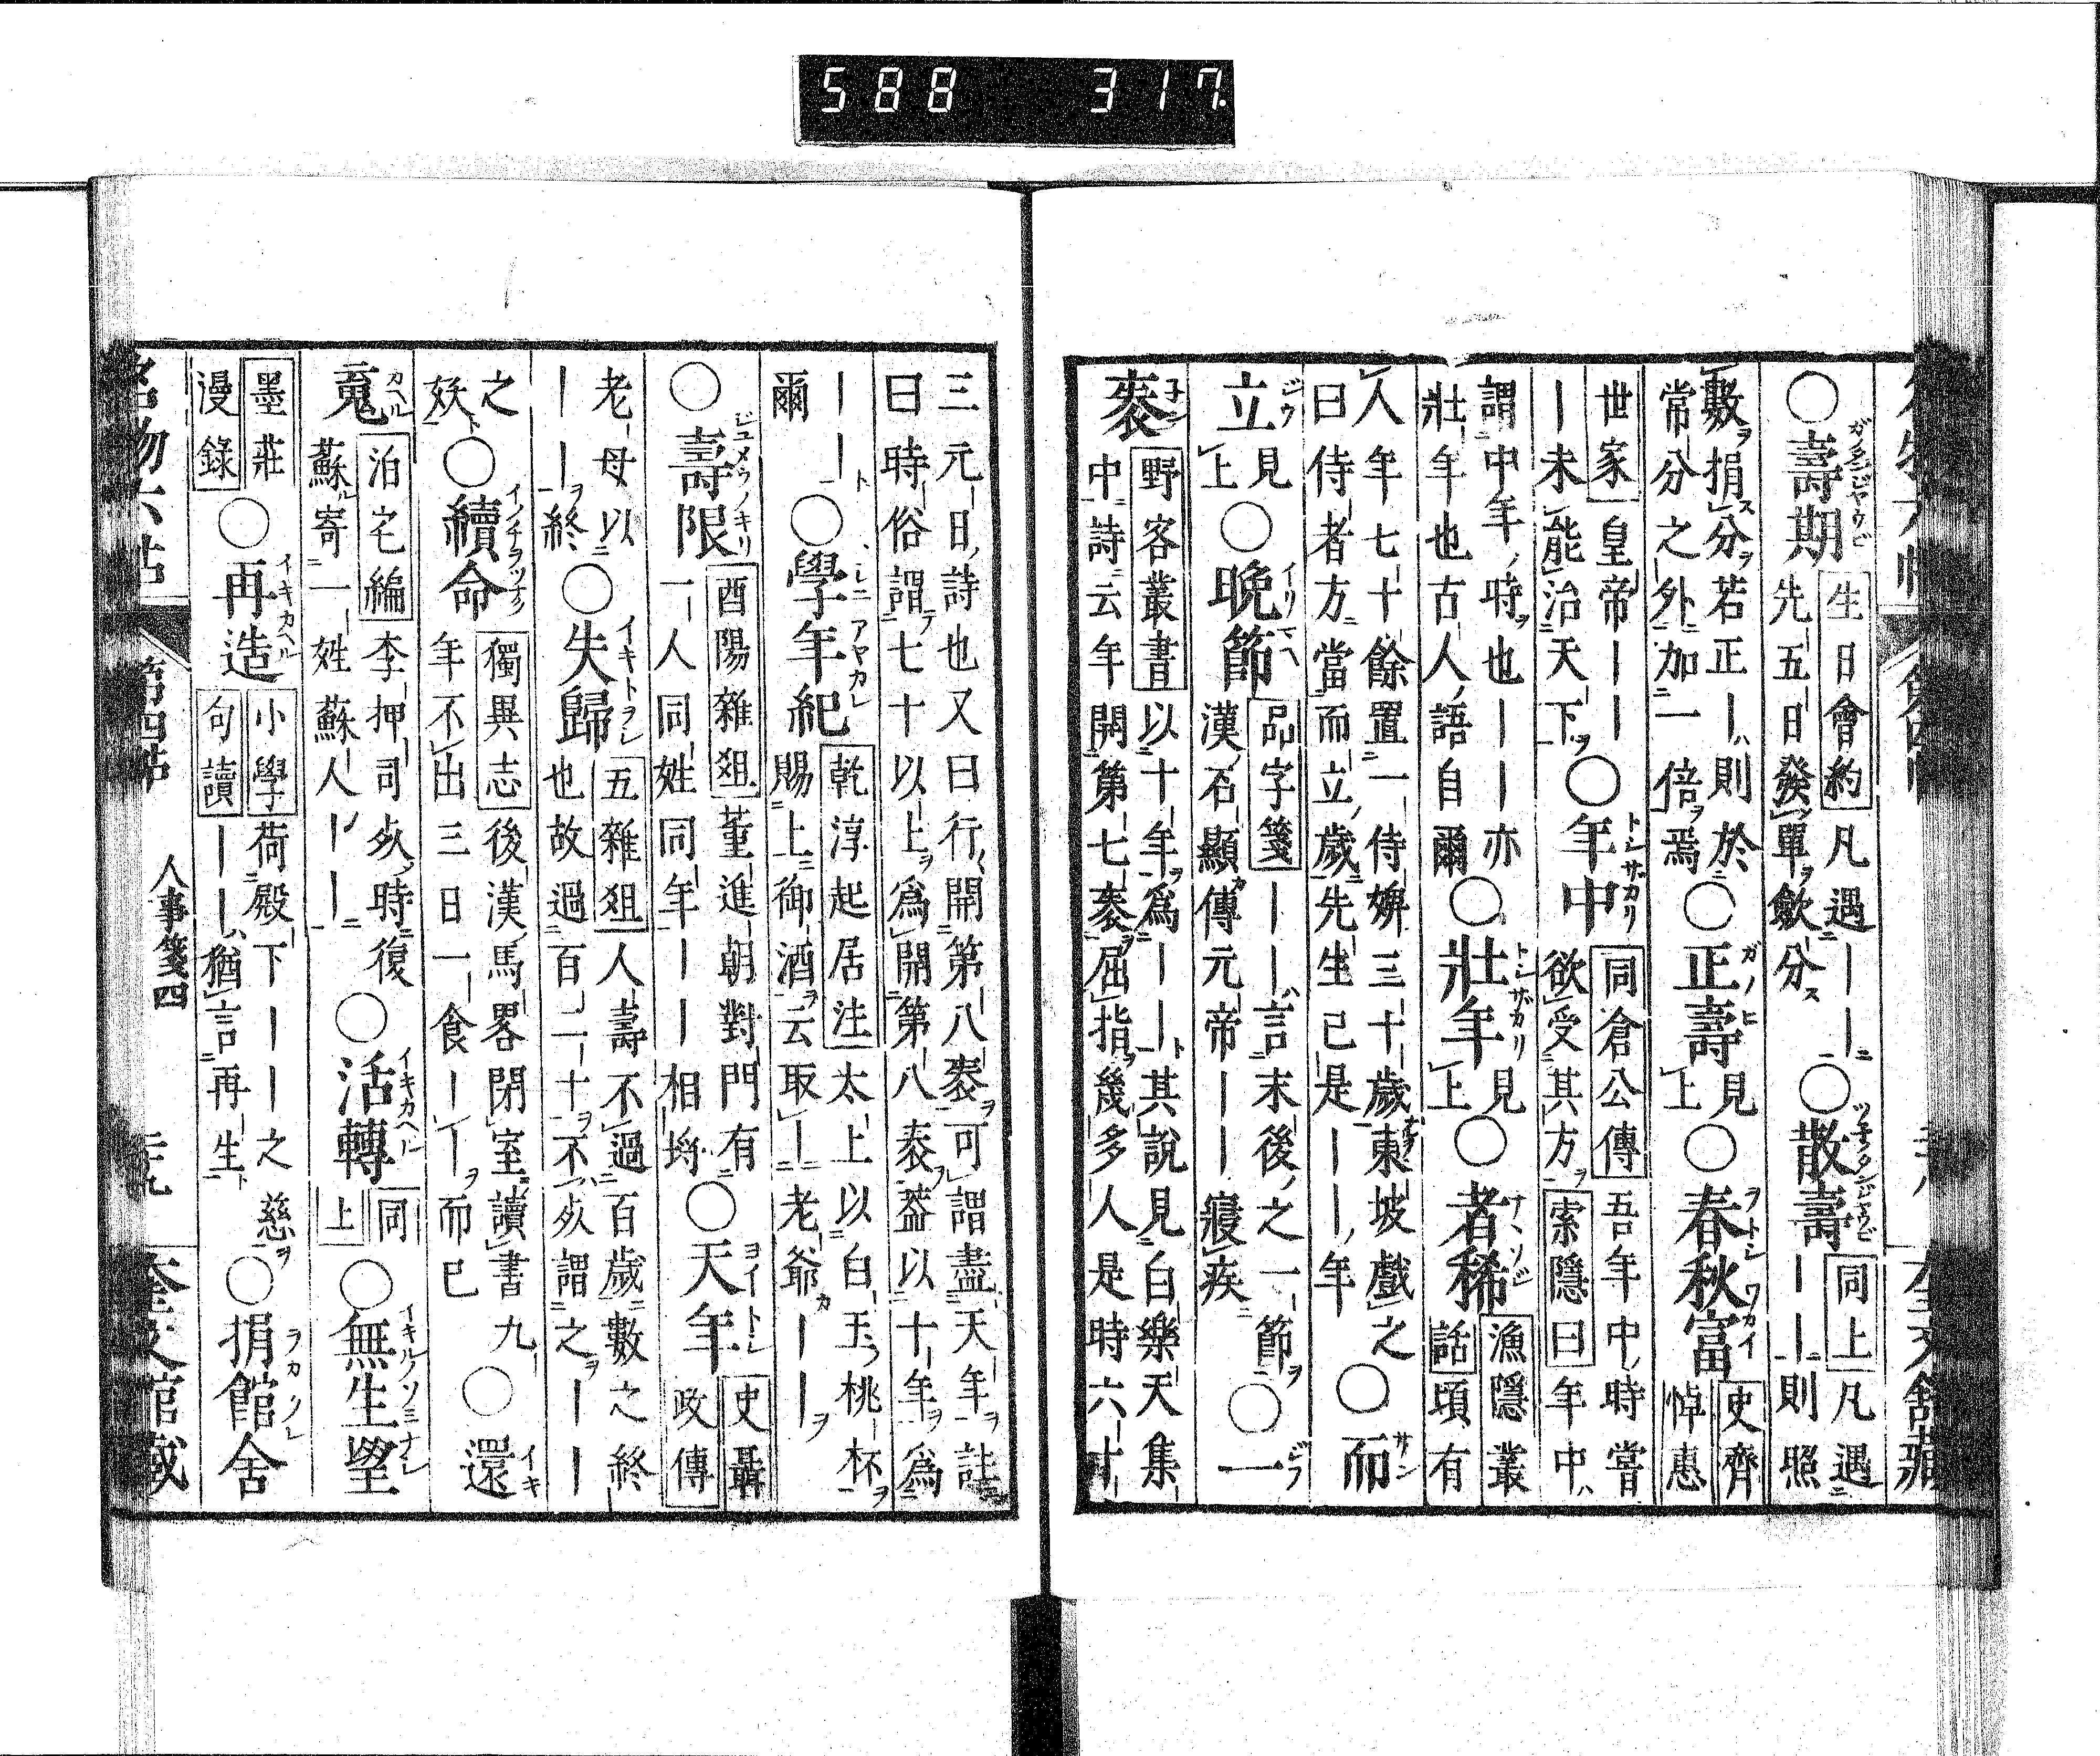 588 317
○壽期生日會約凡遇｜｜先五日發單歛分○散壽同上凡遇｜｜則照
數捐分若正｜則於常分之外加一倍焉○正壽見上○春秋富史齊悼惠
世家皇帝｜｜｜未能治天下○年中同倉公傳吾年中時嘗欲受其方索隱曰年中
謂中年時也｜｜亦壯年也古人語自爾○壯年見上○者稀漁隱叢話頃有
人年七十餘置一侍婢三十歲東坡戲之曰侍者方當而立歲先生已是｜｜年○而
立見上○晚節品字箋｜｜言末後之一節漢石顯傳元帝｜｜寢疾○一
袠野客叢書以十年爲｜｜其說見白樂天集中詩云年開第七袠屈指幾多人是時六十
三元日詩也又曰行開第八袠可謂盡天年註曰時俗謂七十以上爲開第八袠葢以十年爲
｜｜爾○學年紀乾淳起居注太上以白玉桃杯賜上御酒云取｜老爺｜｜
○壽限酉陽雜俎董進朝對門有一人同姓同年｜｜相埒○天年史聶政傳
老母以｜｜終○失歸五雜俎人壽不過百歲數之終也故過百二十不死謂之｜｜
之妖○續命獨異志後漢馬畧閉室讀書九年不出三日一食｜｜而已○還
䰟泊宅編李押司死時復蘇寄一姓蘇人｜｜○活轉同上○無生望
墨莊漫錄○再造小學句讀荷殿下｜｜之慈｜｜猶言再生○捐館舍
名物六帖 第四帖 人事箋四 奎文館藏